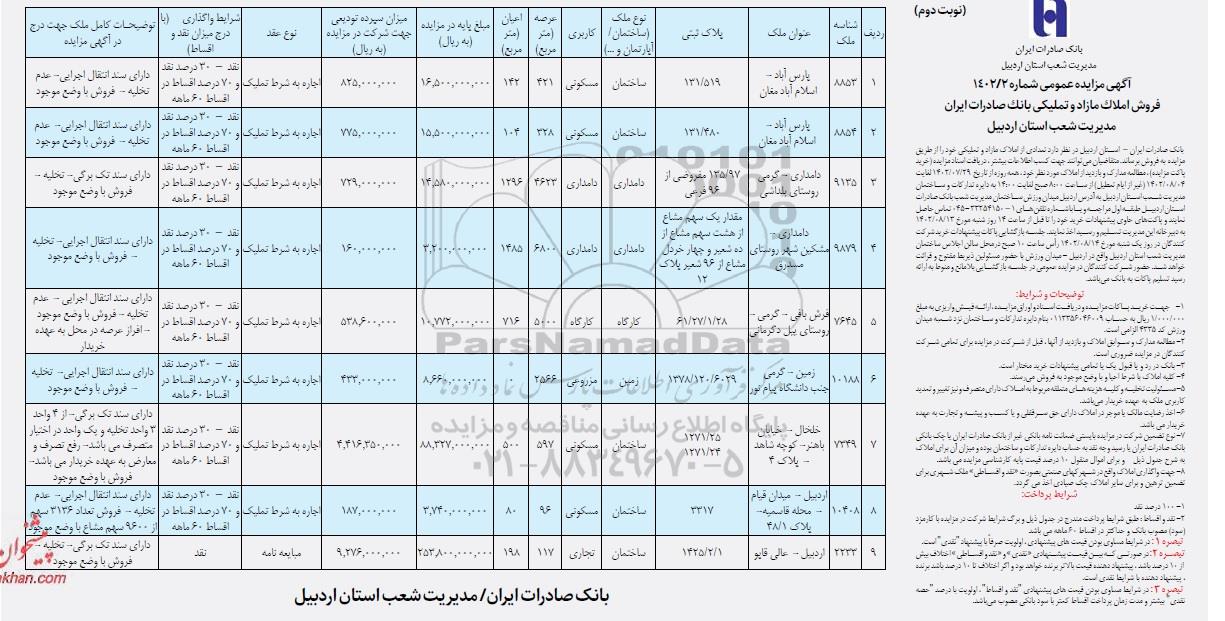 (نوبت دوم)
بانک صادرات ایران
مدیریت شعب استان اردبیل
آگهی مزایده عمومی شماره ۱۴۰۲/۲
فروش املاک مازاد و تملیکی بانک صادرات ایران
مدیریت شعب استان اردبیل
بانک صادرات ایران – استان اردبیل در نظر دارد تعدادی از املاک مازاد و تملیکی خود را از طریق
مزایده به فروش برساند. متقاضیان می‌توانند جهت کسب اطلاعات بیشتر ، دریافت اسناد مزایده (خرید
پاکت مزایده)، مطالعه مدارک و بازدید از املاک مورد نظر خود، همه روزه از تاریخ ۱۴۰۲/۰۷/۲۹ لغایت
۱۴۰۲/۰۸/۰۴ (غیر از ایام تعطیل) از ساعت ۸:۰۰ صبح لغایت ۱۴:۰۰ به دایره تدارکات و ساختمان
مدیریت شعب استان اردبیل به آدرس اردبیل میدان ورزش ساختمان مدیریت شعب بانک صادرات
استان اردبیل طبقه اول مراجعه و یا با شماره تلفن های ۱–۳۳۲۵۴۱۵۰–۰۴۵ تماس حاصل
نمایند و پاکت‌های حاوی پیشنهادات خرید خود را تا قبل از ساعت ۱۴ روز شنبه مورخ ۱۴۰۲/۰۸/۱۳
به دبیرخانه این مدیریت تسلیم و رسید اخذ نمایند. جلسه بازگشایی پاکات پیشنهادات خرید شرکت
کنندگان در روز یک شنبه مورخ ۱۴۰۲/۰۸/۱۴ رأس ساعت ۱۰ صبح در محل سالن اجلاس ساختمان
مدیریت شعب استان اردبیل واقع در اردبیل – میدان ورزش با حضور مسئولین ذیربط مفتوح و قرائت
خواهد شد. حضور شرکت کنندگان در مزایده عمومی در جلسه بازگشایی بلامانع و منوط به ارائه
رسید تسلیم پاکات به بانک می‌باشد.
توضیحات و شرایط:
۱– جهت خرید پاکات مزایده و دریافت اسناد و اوراق مزایده، ارائه فیش واریزی به مبلغ
۱/۰۰۰/۰۰۰ ریال به حساب ۰۱۱۳۳۵۶۰۴۶۰۰۹ بنام دایره تدارکات و ساختمان نزد شعبه میدان
ورزش کد ۴۳۳۵ الزامی است.
۲– مطالعه مدارک و سوابق املاک و بازدید از آنها، قبل از شرکت در مزایده برای تمامی شرکت
کنندگان در مزایده ضروری است.
۳– بانک در رد و یا قبول یک یا تمامی پیشنهادات خرید مختار است.
۴– کلیه املاک با شرط احیا و با وضع موجود به فروش می‌رسند.
۵– مسئولیت تخلیه و کلیه هزینه های متعلقه مربوط به املاک دارای متصرف و نیز تغییر و تمدید
کاربری ملک به عهده خریدار می‌باشد.
۶– اخذ رضایت مالک یا موجر در املاک دارای حق سرقفلی و یا کسب و پیشه و تجارت به عهده
خریدار می باشد.
۷– نوع تضمین شرکت در مزایده بایستی ضمانت نامه بانکی غیر از بانک صادرات ایران یا چک بانکی
بانک صادرات ایران یا رسید وجه نقد به حساب دایره تدارکات و ساختمان بوده و میزان آن برای املاک
به شرح جدول ذیل و برای اموال منقول ۱۰ درصد قیمت پایه کارشناسی مزایده می باشد.
۸– جهت واگذاری املاک واقع در شهرکهای صنعتی بصورت «نقد و اقساطی» ملک شهری برای
تضمین ترهین و برای سایر املاک چک صیادی اخذ می گردد.
شرایط پرداخت:
۱– ۱۰۰ درصد نقد
۲– نقد و اقساط: طبق شرایط پرداخت مندرج در جدول ذیل و برگ شرایط شرکت در مزایده با کارمزد
(سود) مصوب بانک و حداکثر در اقساط ۶۰ ماهه می باشد
تبصره ۱: در شرایط مساوی بودن قیمت های پیشنهادی ، اولویت صرفاً با پیشنهاد "نقدی" است.
تبصره ۲: در صورتی که بین قیمت پیشنهادی «نقدی» و «نقد و اقساطی» اختلاف بیش
از ۱۰ درصد باشد ، پیشنهاد دهنده قیمت بالاتر برنده خواهد بود و اگر اختلاف تا ۱۰ درصد باشد برنده
، پیشنهاد دهنده با شرایط نقدی است.
تبصره ۳: در شرایط مساوی بودن قیمت های پیشنهادی "نقد و اقساط"، اولویت با درصد "حصه
نقدی" بیشتر و مدت زمان پرداخت اقساط کمتر با سود بانکی مصوب می‌باشد.
ردیف | شناسه ملک | عنوان ملک | پلاک ثبتی | نوع ملک (ساختمان/ آپارتمان و ...) | کاربری | عرصه (متر مربع) | اعیان (متر مربع) | مبلغ پایه در مزایده (به ریال) | میزان سپرده تودیعی جهت شرکت در مزایده (به ریال) | نوع عقد | شرایط واگذاری (با درج میزان نقد و اقساط) | توضیحات کامل ملک جهت درج در آگهی مزایده
۱ | ۸۸۵۳ | پارس آباد – اسلام آباد مغان | ۱۳۱/۵۱۹ | ساختمان | مسکونی | ۴۲۱ | ۱۴۲ | ۱۶,۵۰۰,۰۰۰,۰۰۰ | ۸۲۵,۰۰۰,۰۰۰ | اجاره به شرط تملیک | نقد – ۳۰ درصد نقد و ۷۰ درصد اقساط در اقساط ۶۰ ماهه | دارای سند انتقال اجرایی– عدم تخلیه – فروش با وضع موجود
۲ | ۸۸۵۴ | پارس آباد – اسلام آباد مغان | ۱۳۱/۴۸۰ | ساختمان | مسکونی | ۳۲۸ | ۱۰۴ | ۱۵,۵۰۰,۰۰۰,۰۰۰ | ۷۷۵,۰۰۰,۰۰۰ | اجاره به شرط تملیک | نقد – ۳۰ درصد نقد و ۷۰ درصد اقساط در اقساط ۶۰ ماهه | دارای سند انتقال اجرایی– عدم تخلیه – فروش با وضع موجود
۳ | ۹۱۳۵ | دامداری – گرمی روستای بلداشی | ۱۳۵/۹۷ مفروضی از ۹۶ فرعی | دامداری | دامداری | ۴۶۲۳ | ۱۲۹۶ | ۱۴,۵۸۰,۰۰۰,۰۰۰ | ۷۲۹,۰۰۰,۰۰۰ | اجاره به شرط تملیک | نقد – ۳۰ درصد نقد و ۷۰ درصد اقساط در اقساط ۶۰ ماهه | دارای سند تک برگی– تخلیه – فروش با وضع موجود
۴ | ۹۸۷۹ | دامداری – مشکین شهر روستای مسدرق | مقدار یک سهم مشاع از هشت سهم مشاع از ده شعیر و چهار خردل مشاع از ۹۶ شعیر پلاک ۱۲ | دامداری | دامداری | ۶۸۰۰ | ۱۴۸۵ | ۳,۲۰۰,۰۰۰,۰۰۰ | ۱۶۰,۰۰۰,۰۰۰ | اجاره به شرط تملیک | نقد – ۳۰ درصد نقد و ۷۰ درصد اقساط در اقساط ۶۰ ماهه | دارای سند انتقال اجرایی– تخلیه – فروش با وضع موجود
۵ | ۷۶۴۵ | فرش بافی – گرمی – روستای بیل دگرمانی | ۶۱/۲۷/۱/۲۸ | کارگاه | کارگاه | ۵۰۰۰ | ۷۱۶ | ۱۰,۷۷۲,۰۰۰,۰۰۰ | ۵۳۸,۶۰۰,۰۰۰ | اجاره به شرط تملیک | نقد – ۳۰ درصد نقد و ۷۰ درصد اقساط در اقساط ۶۰ ماهه | دارای سند انتقال اجرایی – عدم تخلیه – فروش با وضع موجود –افراز عرصه در محل به عهده خریدار
۶ | ۱۰۱۸۸ | زمین – گرمی جنب دانشگاه پیام نور | ۱۳۷۸/۱۲۰/۶۰۲۹ | زمین | مزروعی | ۲۵۶۶ | ۸,۶۶۰,۰۰۰,۰۰۰ | ۴۳۳,۰۰۰,۰۰۰ | اجاره به شرط تملیک | نقد – ۳۰ درصد نقد و ۷۰ درصد اقساط در اقساط ۶۰ ماهه | دارای سند انتقال اجرایی– تخلیه – فروش با وضع موجود
۷ | ۷۳۴۹ | خلخال – خیابان باهنر– کوچه شاهد – پلاک ۴ | ۱۲۷۱/۲۵ ۱۲۷۱/۲۴ | ساختمان | مسکونی | ۵۹۷ | ۵۰۰ | ۸۸,۳۲۷,۰۰۰,۰۰۰ | ۴,۴۱۶,۳۵۰,۰۰۰ | اجاره به شرط تملیک | نقد – ۳۰ درصد نقد و ۷۰ درصد اقساط در اقساط ۶۰ ماهه | دارای سند تک برگی– از ۴ واحد ۳ واحد تخلیه و یک واحد در اختیار متصرف می باشد– رفع تصرف و معارض به عهده خریدار می باشد– فروش با وضع موجود
۸ | ۱۰۴۰۸ | اردبیل – میدان قیام – محله قاسمیه– پلاک ۴۸/۱ | ۳۳۱۷ | ساختمان | مسکونی | ۹۶ | ۸۰ | ۳,۷۴۰,۰۰۰,۰۰۰ | ۱۸۷,۰۰۰,۰۰۰ | اجاره به شرط تملیک | نقد – ۳۰ درصد نقد و ۷۰ درصد اقساط در اقساط ۶۰ ماهه | دارای سند انتقال اجرایی– عدم تخلیه – فروش تعداد ۳۱۳۶ سهم از ۹۶۰۰ سهم مشاع با وضع موجود
۹ | ۲۲۳۳ | اردبیل – عالی قاپو | ۱۴۲۵/۲/۱ | ساختمان | تجاری | ۱۱۷ | ۱۹۸ | ۲۵۳,۸۰۰,۰۰۰,۰۰۰ | ۹,۲۷۶,۰۰۰,۰۰۰ | مبایعه نامه | نقد | دارای سند تک برگی– تخلیه – فروش با وضع موجود
بانک صادرات ایران/ مدیریت شعب استان اردبیل
ParsNamadData
پایگاه اطلاع رسانی مناقصه و مزایده
۰۲۱–۸۸۳۴۹۶۷۰–۵
پیشخوان
khan.com